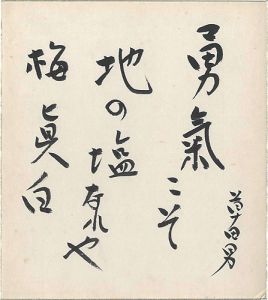 勇氣こそ
地の塩なれや
梅真白
草田男